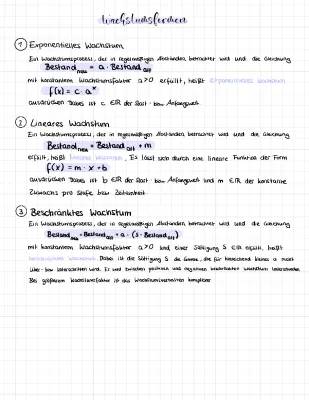 Wachstumsformen
① Exponentielles Wachstum
Ein Wachstumsprozess, der in regelmäßigen Abständen betrachtet wird und die Gleichung
Bestand neu = a · Bestand alt
mit konstantem Wachstumsfaktor a>0 erfüllt, heißt exponentielles Wachstum
f(x) = c · a^x
ausdrücken. Dabei ist c ∈ℝ der Start- bzw. Anfangswert
② Lineares Wachstum
Ein Wachstumsprozess, der in regelmäßigen Abständen betrachtet wird und die Gleichung
Bestand neu = Bestand alt + m
erfüllt, heißt lineares Wachstum. Es lässt sich durch eine lineare Funktion der Form
f(x) = m · x + b
ausdrücken. Dabei ist b ∈ℝ der Start- bzw. Anfangswert und m ∈ℝ der konstante
Zuwachs pro Stufe bzw. Zeiteinheit.
③ Beschränktes Wachstum
Ein Wachstumsprozess, der in regelmäßigen Abständen betrachtet wird und die Gleichung
Bestand neu = Bestand alt + a · (S - Bestand alt)
mit konstantem Wachstumsfaktor a>0 und einer Sättigung S ∈ℝ erfüllt, heißt
beschränktes Wachstum. Dabei ist die Sättigung S die Grenze, die für hinreichend kleines a nicht
über- bzw. unterschritten wird. Es wird zwischen positivem und negativem beschränkten Wachstum unterschieden.
Bei größerem Wachstumsfaktor ist das Wachstumsverhalten komplexer